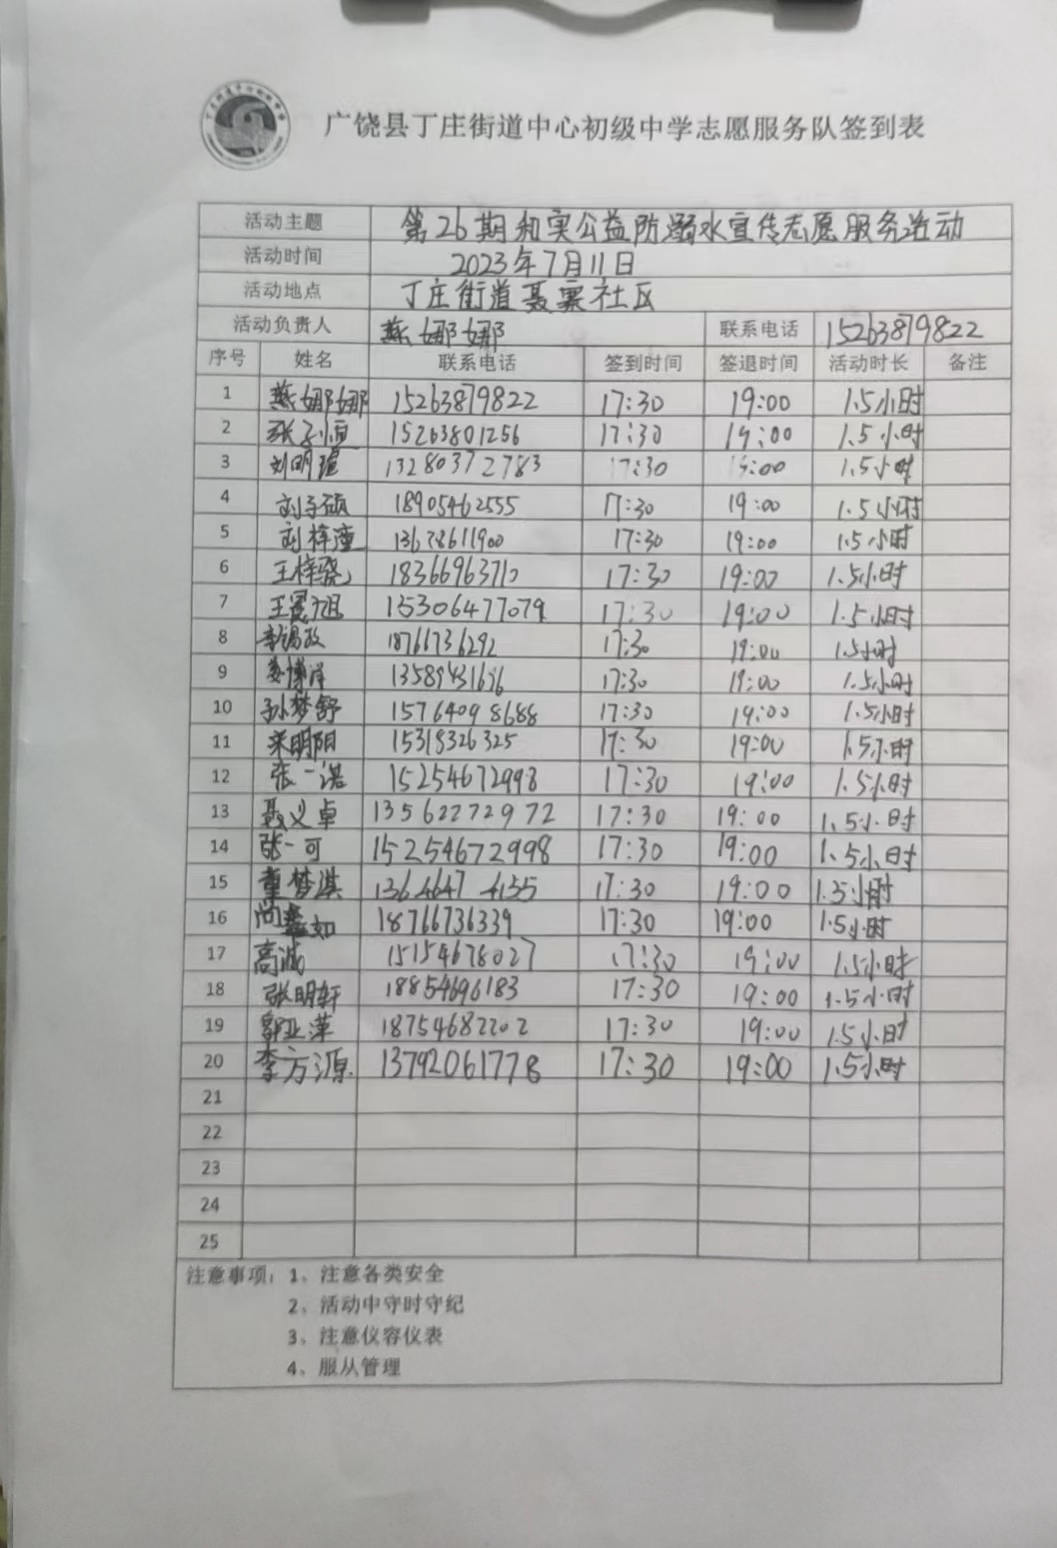 广饶县丁庄街道中心初级中学志愿服务队签到表
活动主题 第26期和实公益防溺水宣传志愿服务活动
活动时间 2023年7月11日
活动地点 丁庄街道聂寨社区
活动负责人 燕娜娜 联系电话 15263879822
序号 姓名 联系电话 签到时间 签退时间 活动时长 备注
1 燕娜娜 15263879822 17:30 19:00 1.5小时
2 张子恒 15263801256 17:30 19:00 1.5小时
3 刘明瑄 13280372783 17:30 19:00 1.5小时
4 刘子硕 18905462555 17:30 19:00 1.5小时
5 刘梓潼 13678611900 17:30 19:00 1.5小时
6 王梓骁 18366963710 17:30 19:00 1.5小时
7 15306477079 17:30 19:00 1.5小时
8 18766736292 17:30 19:00 1.5小时
9 姜博洋 17:30 19:00 1.5小时
10 孙梦舒 15764098688 17:30 19:00 1.5小时
11 宋明阳 15319326325 17:30 19:00 1.5小时
12 张一诺 15254672998 17:30 19:00 1.5小时
13 聂义卓 13562272972 17:30 19:00 1.5小时
14 张一可 15254672998 17:30 19:00 1.5小时
15 董梦淇 13646474155 17:30 19:00 1.5小时
16 尚鑫如 18766736339 17:30 19:00 1.5小时
17 高诚 15154678027 17:30 19:00 1.5小时
18 张明轩 18854696183 17:30 19:00 1.5小时
19 郭亚萍 18754682202 17:30 19:00 1.5小时
20 李方源 13792061778 17:30 19:00 1.5小时
21
22
23
24
25
注意事项：1、注意各类安全
2、活动中守时守纪
3、注意仪容仪表
4、服从管理